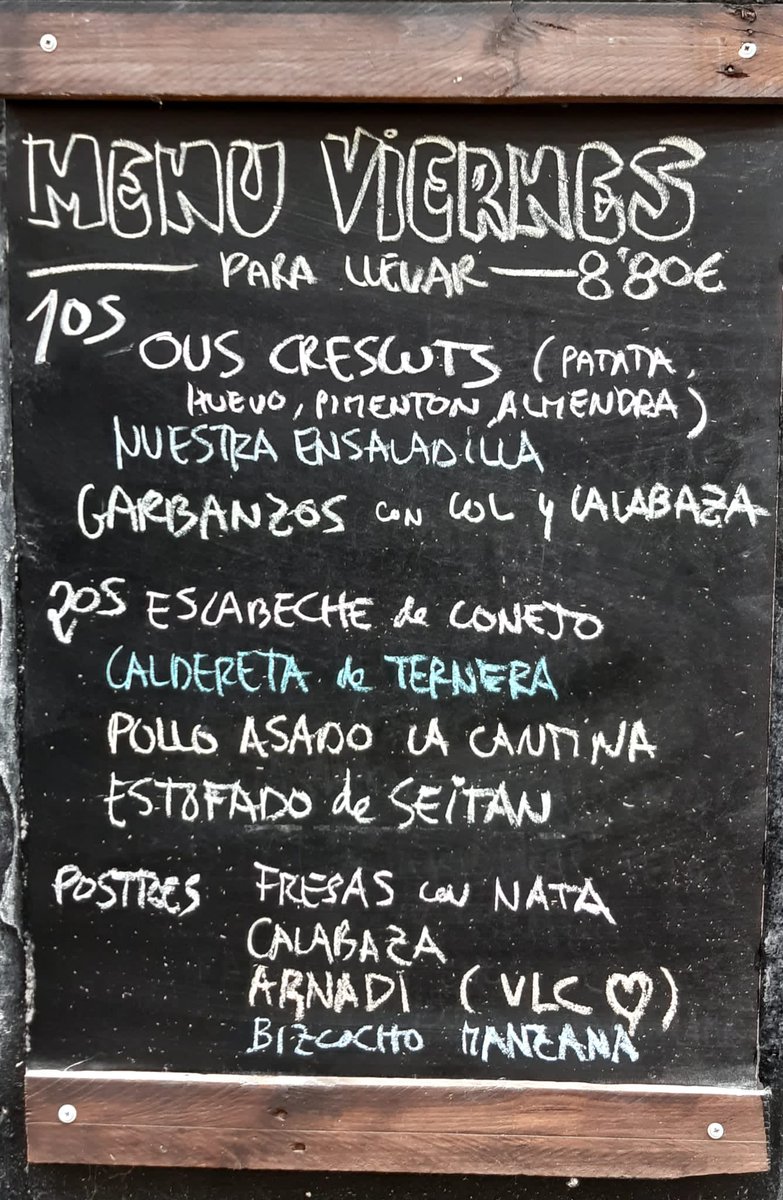 MENU VIERNES
PARA LLEVAR 8'80€
1os
OUS CRESCUTS (PATATA,
HUEVO, PIMENTON, ALMENDRA)
NUESTRA ENSALADILLA
GARBANZOS con COL y CALABAZA
2os ESCABECHE de CONEJO
CALDERETA de TERNERA
POLLO ASADO LA CANTINA
ESTOFADO de SEITAN
POSTRES FRESAS con NATA
CALABAZA
ARNADI (VLC ♡)
BIZCOCHO MANZANA